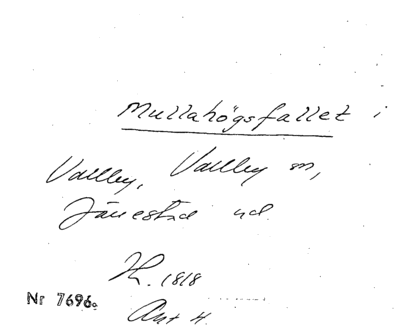 Mullahögsfallet i
Valleby, Valleby sn,
Jönestad
H. 1818
Nr 7696a
Ant H.